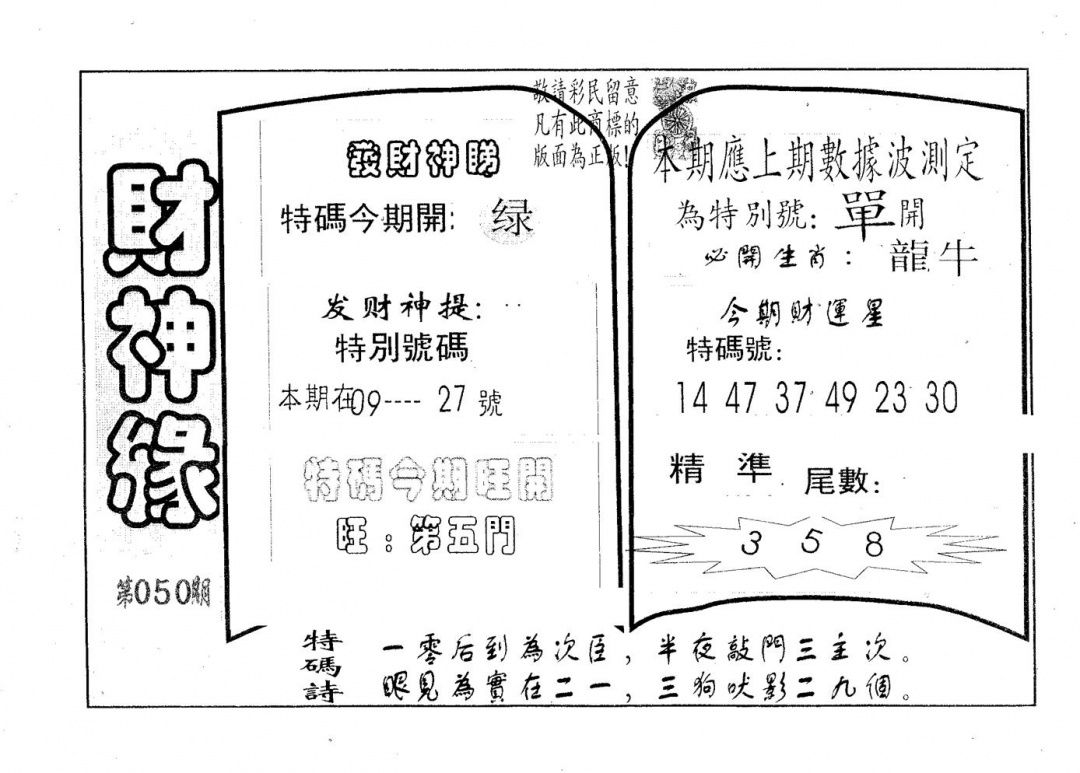 財神緣
第050期
敬請彩民留意
凡有此商標的
版面為正版!
發財神睇
特碼今期開: 绿
发财神提:
特別號碼
本期在09---- 27號
特碼今期旺開
旺:第五門
本期應上期數據波測定
為特別號: 單開
必開生肖: 龍牛
今期財運星
特碼號:
14 47 37 49 23 30
精 準 尾數:
3 5 8
特碼詩
一零后到為次臣,半夜敲門三主次。
眼見為實在二一,三狗吠影二九個。